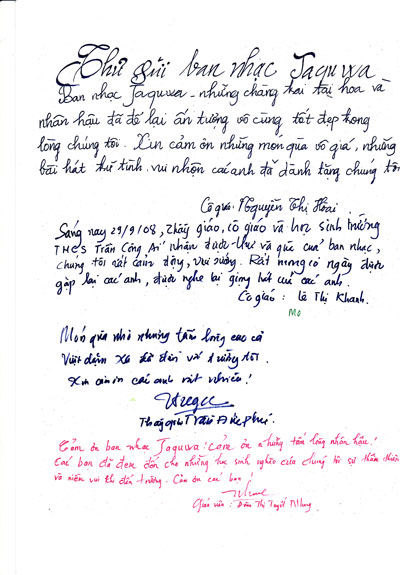 Thư gửi ban nhạc Jaguwa
Ban nhạc Jaguwa - những chàng trai tài hoa và
nhân hậu đã để lại ấn tượng vô cùng tốt đẹp trong
lòng chúng tôi. Xin cảm ơn những món quà vô giá, những
bài hát trữ tình vui nhộn các anh đã dành tặng chúng tôi
Cô giáo: Nguyễn Thị Hoài
Sáng nay 29/9/08, thầy giáo, cô giáo và học sinh trường
THCS Trần Công Ái nhận được thư và quà của ban nhạc,
chúng tôi rất cảm động, vui sướng. Rất mong có ngày được
gặp lại các anh, được nghe lại giọng hát của các anh.
Cô giáo: Lê Thị Khanh.
Món quà nhỏ nhưng tấm lòng cao cả
Xin cảm ơn các anh rất nhiều!
Cảm ơn ban nhạc Jaguwa! cảm ơn những tấm lòng nhân hậu!
Các bạn đã đem đến cho những học sinh nghèo của chúng tôi sự thân thiện
và niềm vui khi đến trường. Cảm ơn các bạn!
Giáo viên: Thị Tuyết Nhung